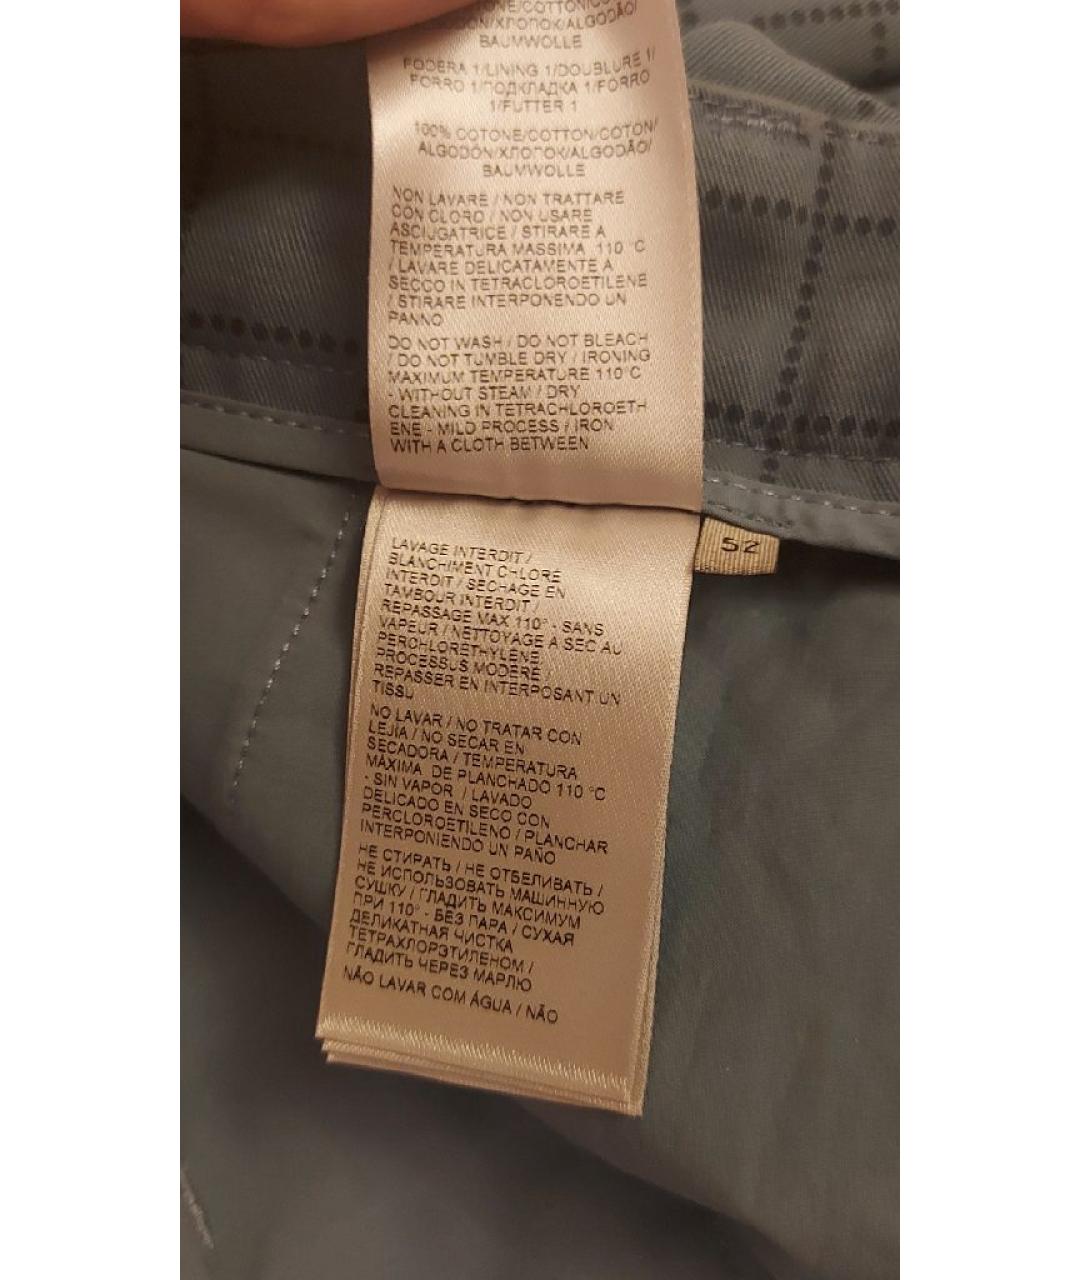 NE/COTTON/CO
ON/ХЛОПОК/ALGODÃO/
BAUMWOLLE
FODERA 1/LINING 1/DOUBLURE 1/
FORRO 1/ПОДКЛАДКА 1/FORRO
1/FUTTER 1
100% COTONE/COTTON/COTON/
ALGODÓN/ХЛОПОК/ALGODÃO/
BAUMWOLLE
NON LAVARE / NON TRATTARE
CON CLORO / NON USARE
ASCIUGATRICE / STIRARE A
TEMPERATURA MASSIMA 110 °C
/ LAVARE DELICATAMENTE A
SECCO IN TETRACLOROETILENE
/ STIRARE INTERPONENDO UN
PANNO
DO NOT WASH / DO NOT BLEACH
/ DO NOT TUMBLE DRY / IRONING
MAXIMUM TEMPERATURE 110°C
- WITHOUT STEAM / DRY
CLEANING IN TETRACHLOROETH
ENE - MILD PROCESS / IRON
WITH A CLOTH BETWEEN
52
LAVAGE INTERDIT /
BLANCHIMENT CHLORÉ
INTERDIT / SECHAGE EN
TAMBOUR INTERDIT /
REPASSAGE MAX 110° - SANS
VAPEUR / NETTOYAGE A SEC AU
PERCHLORÉTHYLÈNE,
PROCESSUS MODÉRÉ /
REPASSER EN INTERPOSANT UN
TISSU
NO LAVAR / NO TRATAR CON
LEJÍA / NO SECAR EN
SECADORA / TEMPERATURA
MÁXIMA DE PLANCHADO 110 °C
- SIN VAPOR / LAVADO
DELICADO EN SECO CON
PERCLOROETILENO / PLANCHAR
INTERPONIENDO UN PAÑO
НЕ СТИРАТЬ / НЕ ОТБЕЛИВАТЬ /
НЕ ИСПОЛЬЗОВАТЬ МАШИННУЮ
СУШКУ / ГЛАДИТЬ МАКСИМУМ
ПРИ 110° - БЕЗ ПАРА / СУХАЯ
ДЕЛИКАТНАЯ ЧИСТКА
ТЕТРАХЛОРЭТИЛЕНОМ /
ГЛАДИТЬ ЧЕРЕЗ МАРЛЮ
NÃO LAVAR COM ÁGUA / NÃO